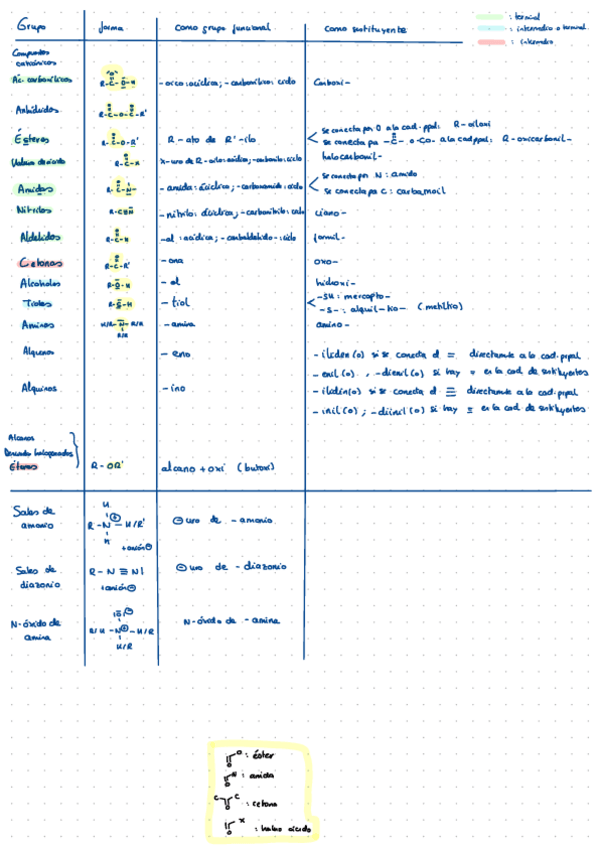 Grupo forma como grupo funcional como sustituyente
: terminal
: intermedio o terminal
: intermedio
Compuestos
catiónicos
Ác. carbonílicos R-C-O-H -oico: acíclica; -carboxílico: ciclo Carboxi-
Anhídridos R-C-O-C-R'
Ésteres R-C-O-R' R-ato de R'-ilo
se conecta por O a la cad. ppal: R-oiloxi
se conecta por -C- o -CO- a la cad ppal: R-oxicarbonil-
R-C-X X-uro de R-oilo: acíclica; -carbonilo: ciclo halocarbonil-
Amidas R-C-N- -amida: acíclica; -carboxamida: ciclo
se conecta por N: amido
se conecta por C: carbamoil
Nitrilos R-C≡N -nitrilo: acíclica; -carbonitrilo: ciclo ciano-
Aldehídos R-C-H -al: acíclica; -carbaldehído: ciclo formil-
Cetonas R-C-R' -ona oxo-
Alcoholes R-O-H -ol hidroxi-
Tioles R-S-H -tiol
-SH: mercapto-
-S-: alquil-tio- (metiltio)
Aminas H/R-N-H/R -amina amino-
H/R
Alquenos -eno -iliden(o) si se conecta el = directamente a la cad. ppal
-enil(o), -dienil(o) si hay = en la cad de sustituyentes
Alquinos -ino -ilidin(o) si se conecta el ≡ directamente a la cad. ppal
-inil(o); -diinil(o) si hay ≡ en la cad de sustituyentes
Alcanos
Derivados halogenados
Éteres R-OR' alcano + oxi (butoxi)
Sales de
amonio
H
R-N-H/R'
⊕
H
+anión⊖
⊖uro de -amonio
Sales de
diazonio
R-N≡N|
+anión⊖
⊖uro de -diazonio
N-óxido de
amina
|O|⊖
R/H-N⊕-H/R
H/R
N-óxido de -amina
O : éster
N : amida
C C : cetona
X : haluro ácido